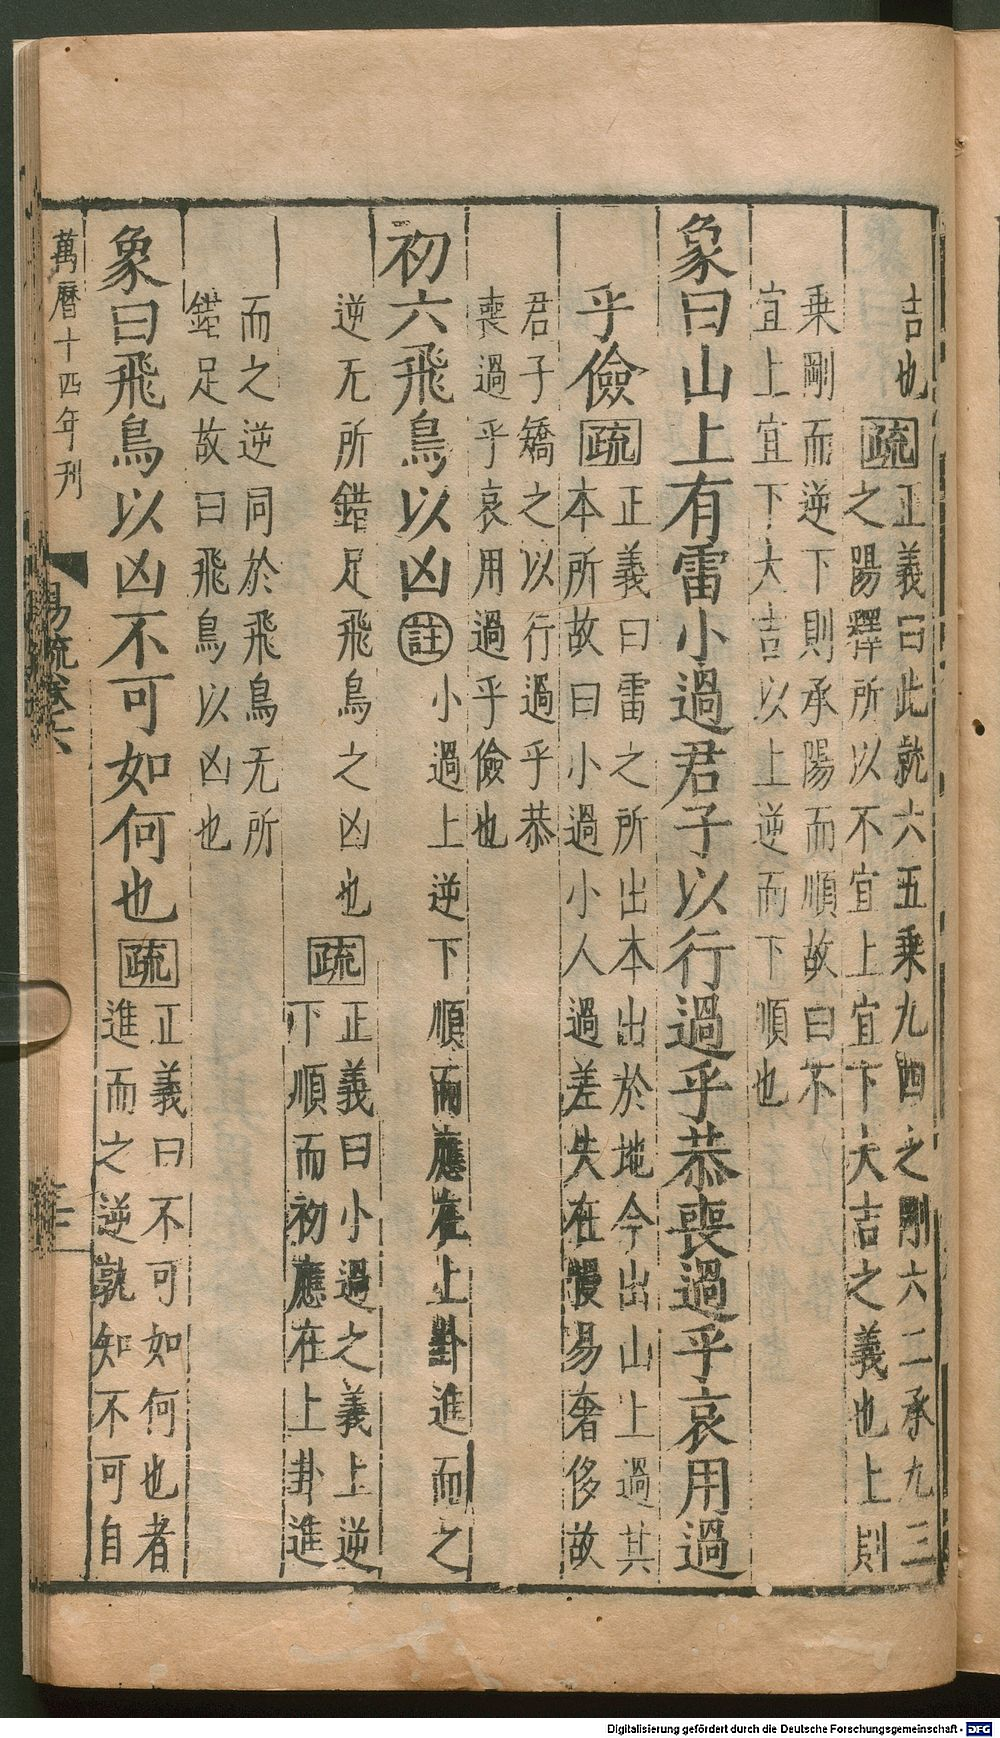 吉也
疏
正義曰此就六五乗九四之剛六二承九三
之陽釋所以不宜上宜下大吉之義也上則
乗剛而逆下則承陽而順故曰不
宜上宜下大吉以上逆而下順也
象曰山上有雷小過君子以行過乎恭喪過乎哀用過
乎儉
疏
正義曰雷之所出本出於地今出山上過其
本所故曰小過小人過差失在慢易奢侈故
君子矯之以行過乎恭
喪過乎哀用過乎儉也
初六飛鳥以凶
註
小過上逆下順而應在上卦進而之
逆无所錯足飛鳥之凶也
疏
正義曰小過之義上逆
下順而初應在上卦進
而之逆同於飛鳥无所
錯足故曰飛鳥以凶也
象曰飛鳥以凶不可如何也
疏
正義曰不可如何也者
進而之逆孰知不可自
萬曆十四年刊
易疏卷六
Digitalisierung gefördert durch die Deutsche Forschungsgemeinschaft - DFG